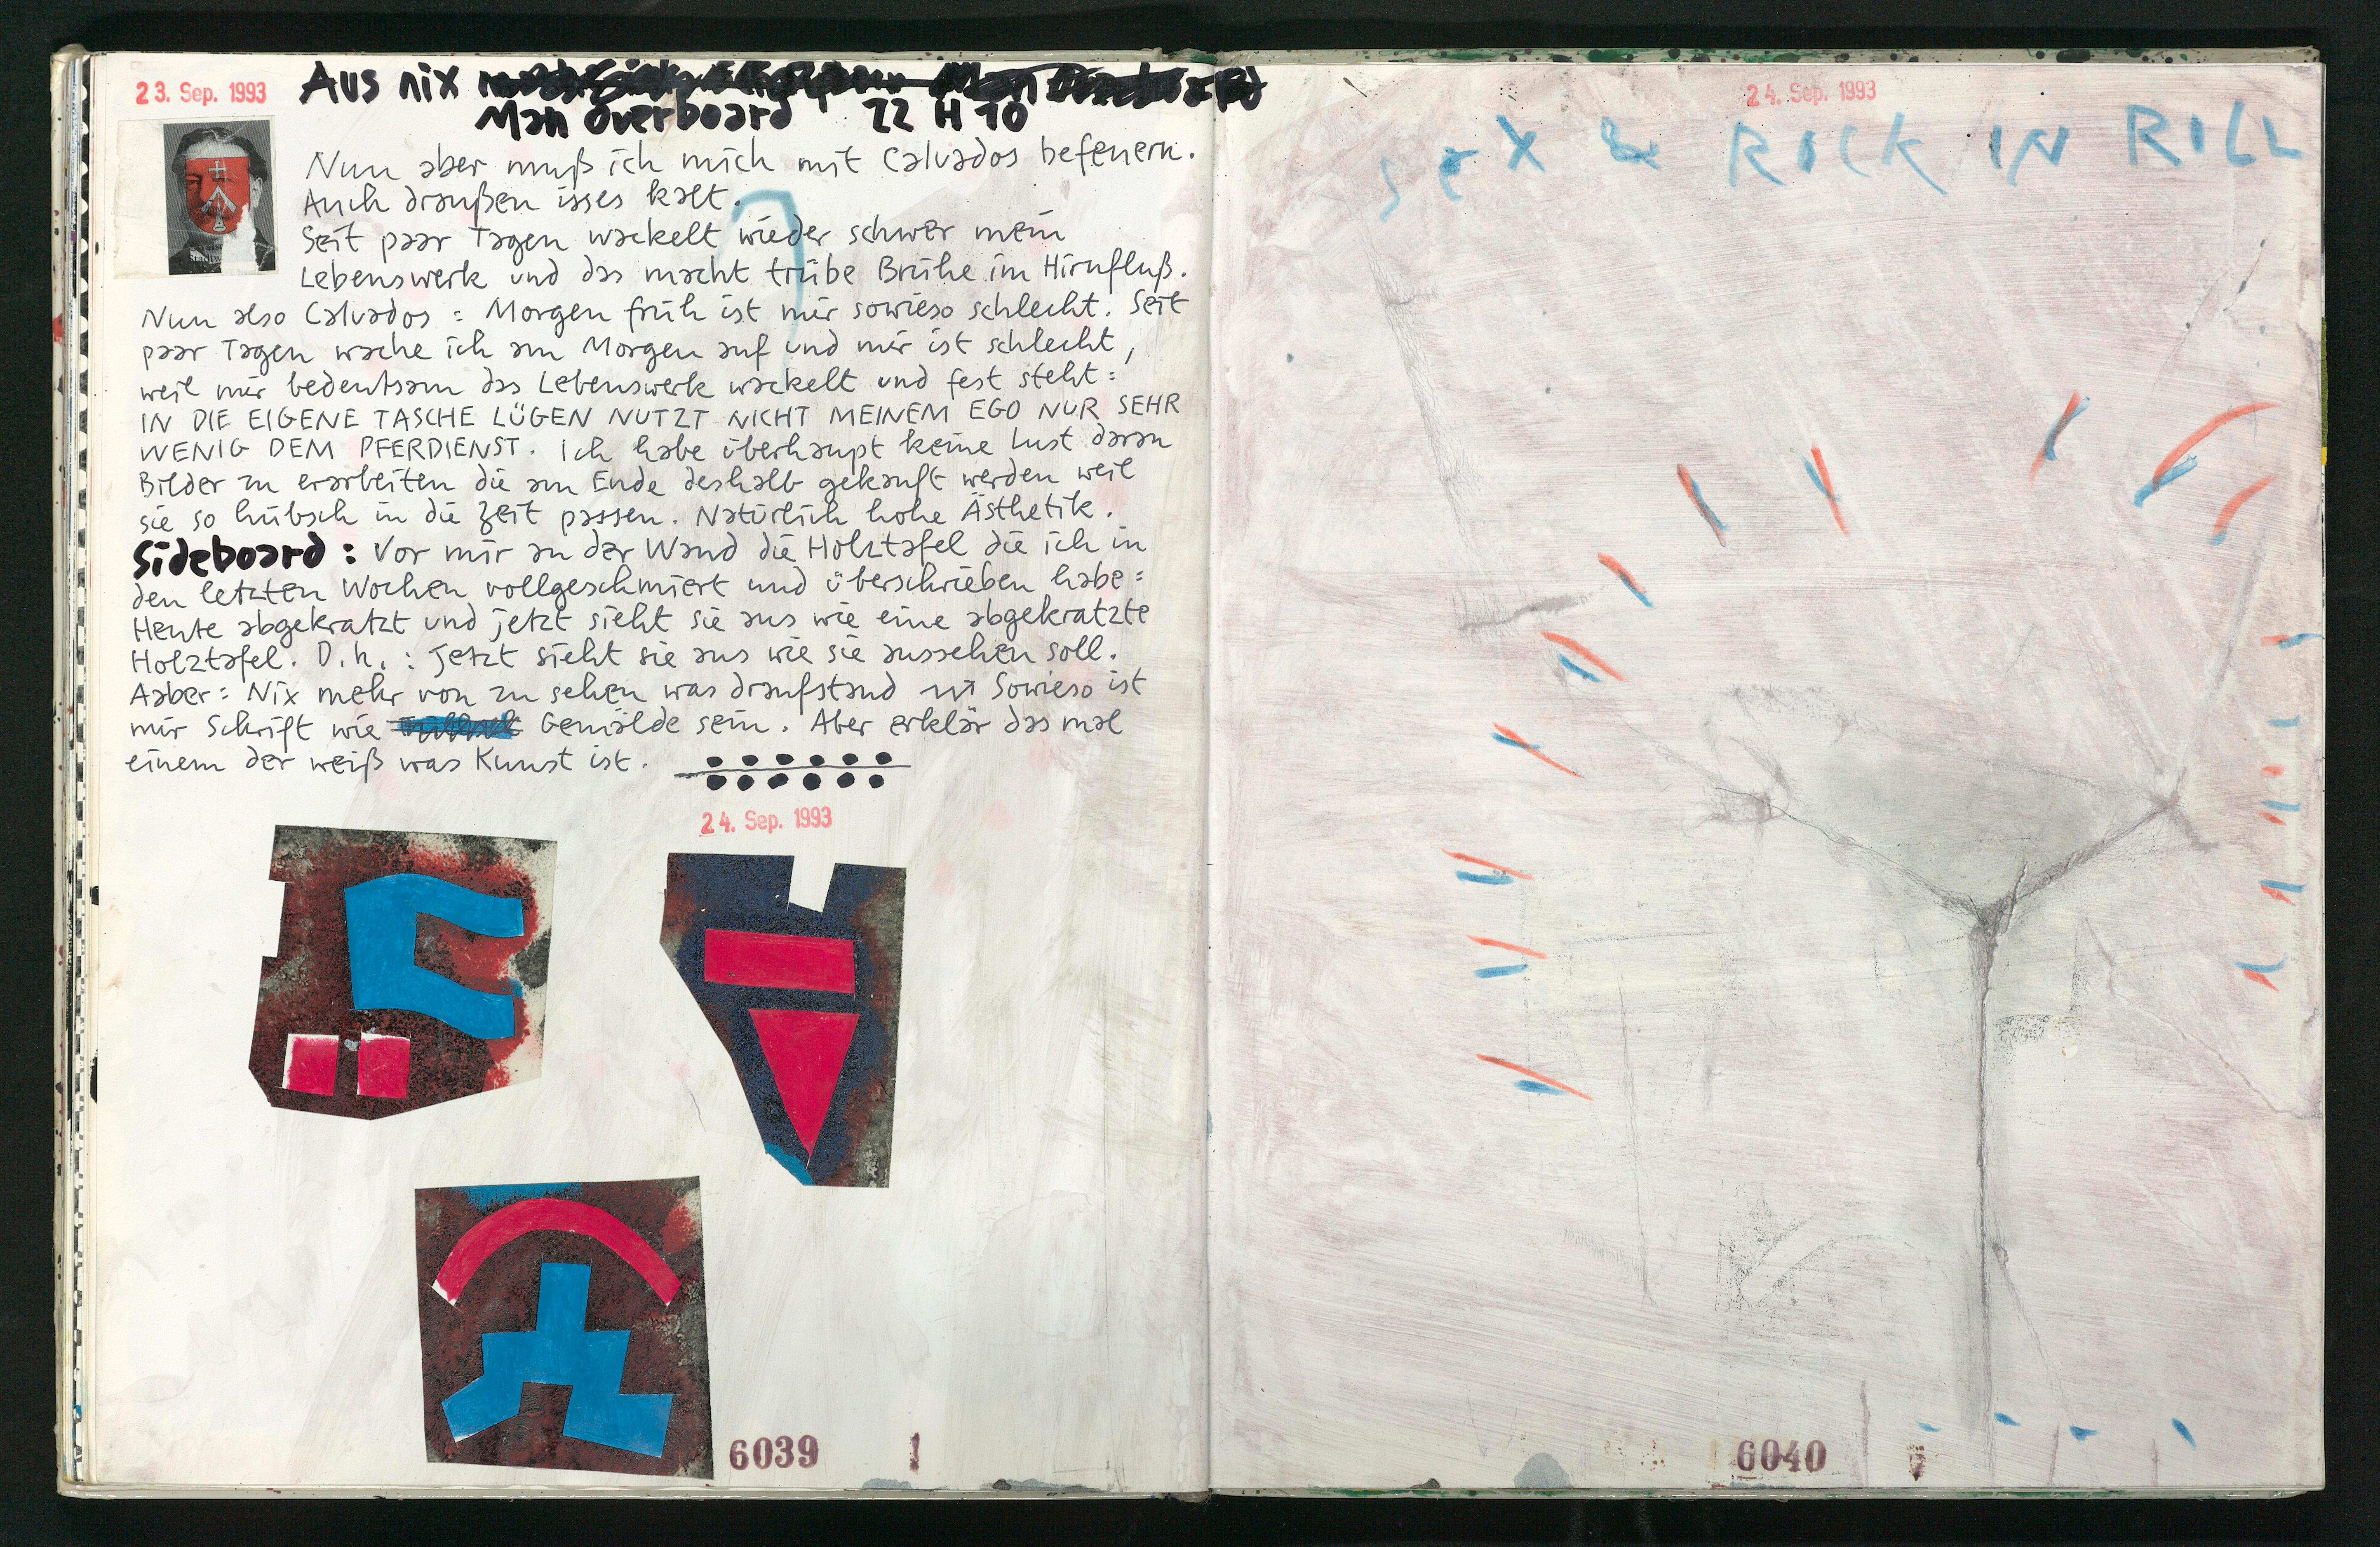 23. Sep. 1993
Aus nix
Man overboard 22 H 10
Nun aber muß ich mich mit Calvados befeuern.
Auch draußen isses kalt.
Seit paar Tagen wackelt wieder schwer mein
Lebenswerk und das macht trübe Brühe im Hirnfluß.
Nun also Calvados: Morgen früh ist mir sowieso schlecht. Seit
paar Tagen wache ich am Morgen auf und mir ist schlecht,
weil mir bedeutsam das Lebenswerk wackelt und fest steht:
IN DIE EIGENE TASCHE LÜGEN NUTZT NICHT MEINEM EGO NUR SEHR
WENIG DEM PFERDIENST. Ich habe überhaupt keine Lust daran
Bilder zu erarbeiten die am Ende deshalb gekauft werden weil
sie so hübsch in die Zeit passen. Natürlich hohe Ästhetik.
Sideboard: Vor mir an der Wand die Holztafel die ich in
den letzten Wochen vollgeschmiert und überschrieben habe:
Heute abgekratzt und jetzt sieht sie aus wie eine abgekratzte
Holztafel. D.h.: jetzt sieht sie aus wie sie aussehen soll.
Aaber: Nix mehr von zu sehen was draufstand Sowieso ist
mir Schrift wie Gemälde sein. Aber erklär das mal
einem der weiß was Kunst ist.
24. Sep. 1993
6039
24. Sep. 1993
SeX & ROCK IN ROLL
6040